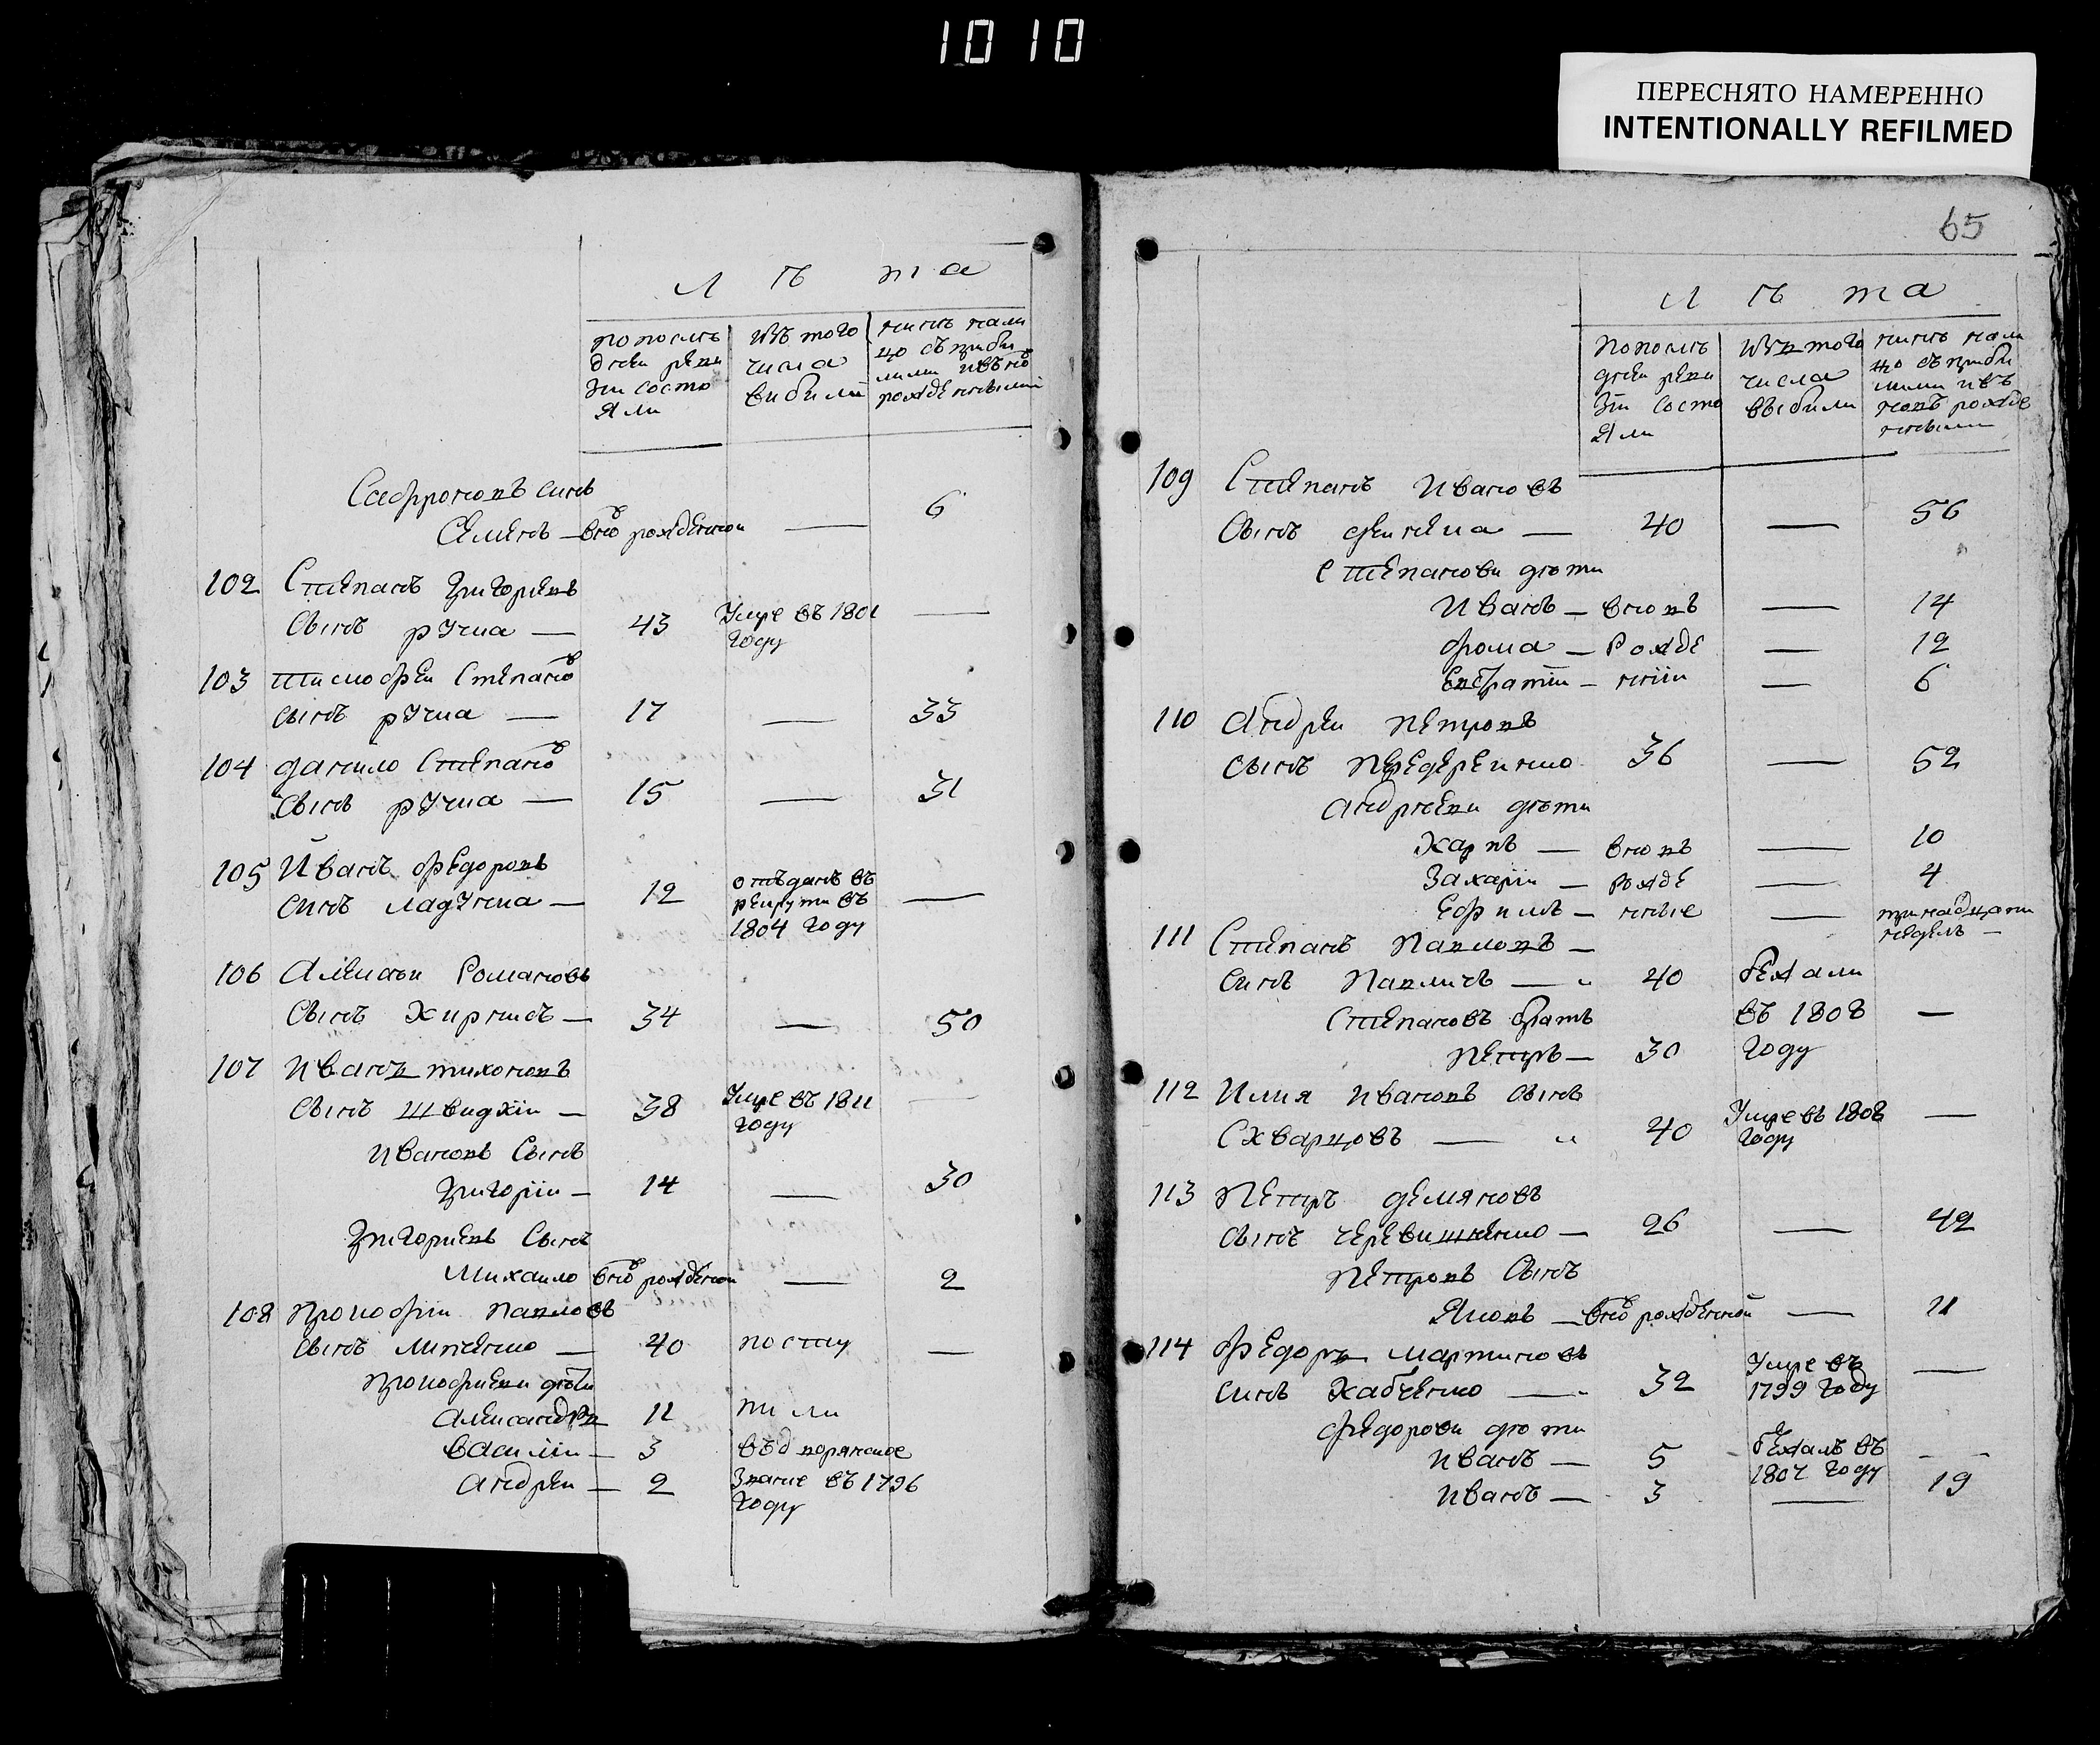 1010
ПЕРЕСНЯТО НАМЕРЕННО
INTENTIONALLY REFILMED
Л ѣ та
по послѣ
дней реви
зіи состо
яли
изъ того
числа
вибили
нинѣ нали
цо съ прибы
лими и вно
рожденными
Сафроновъ синъ
Семенъ — вно рожденной — 6
102 Степанъ Григориевъ
Сынъ рУчка — 43 Умре въ 1801 —
году
103 Тимофеи Степано
сынъ рУчка — 17 — 33
104 данило Степано
Сынъ рУчка — 15 — 31
105 Иванъ Федоровъ
Синъ ладУнка — 12 отъданъ въ —
рекрути въ
1804 году
106 Алексѣи Романовъ
Сынъ Хиржикъ — 34 — 50
107 Иванъ тихоновъ
Сынъ Швидкіи — 38 Умре въ 1811 —
году
Ивановъ Сынъ
Григоріи — 14 — 30
Григориевъ Сынъ
Михаило вно рожденои — 2
108 Прокофіи Павловъ
Сынъ Липченко — 40 посту —
Прокофиеви дѣти
Александръ 11 пи ли
Василіи — 3 въ дворянское
Андреи — 2 Звание въ 1796
году
65
Л ѣ та
По послѣ
дней реви
зіи состо
яли
изъ того
числа
выбыли
нинѣ нали
цо съ прибы
лими и въ
новъ рожде
нными
109 Степанъ Ивановъ
Сынъ — 40 — 56
Степанови дѣти
Иванъ — вновъ — 14
Фома — Рожде — 12
Евстратіи — нніи — 6
110 Андреи Петровъ
Сынъ Передереикко 36 — 52
Андрѣеви дѣти
Карпъ — вновъ — 10
Захаріи — рожде — 4
Ефимъ — нные — тринадцати
недель —
111 Степанъ Павловъ —
Синъ Павличъ — " 40 бежали
Степановъ братъ въ 1808 —
Петръ — 30 году
112 Илия Ивановъ Сынъ
Схварцовъ — " 40 Умре въ 1808 —
году
113 Петръ демяновъ
Сынъ Черевишненко — 26 — 42
Петровъ Сынъ
Яковъ — вно рожденной — 11
114 Федоръ Мартиновъ
Синъ Хабченко — 32 Умре въ —
1799 году
Федорови дѣти
Иванъ — 5 бежалъ въ —
1807 году
Иванъ — 3 — 19